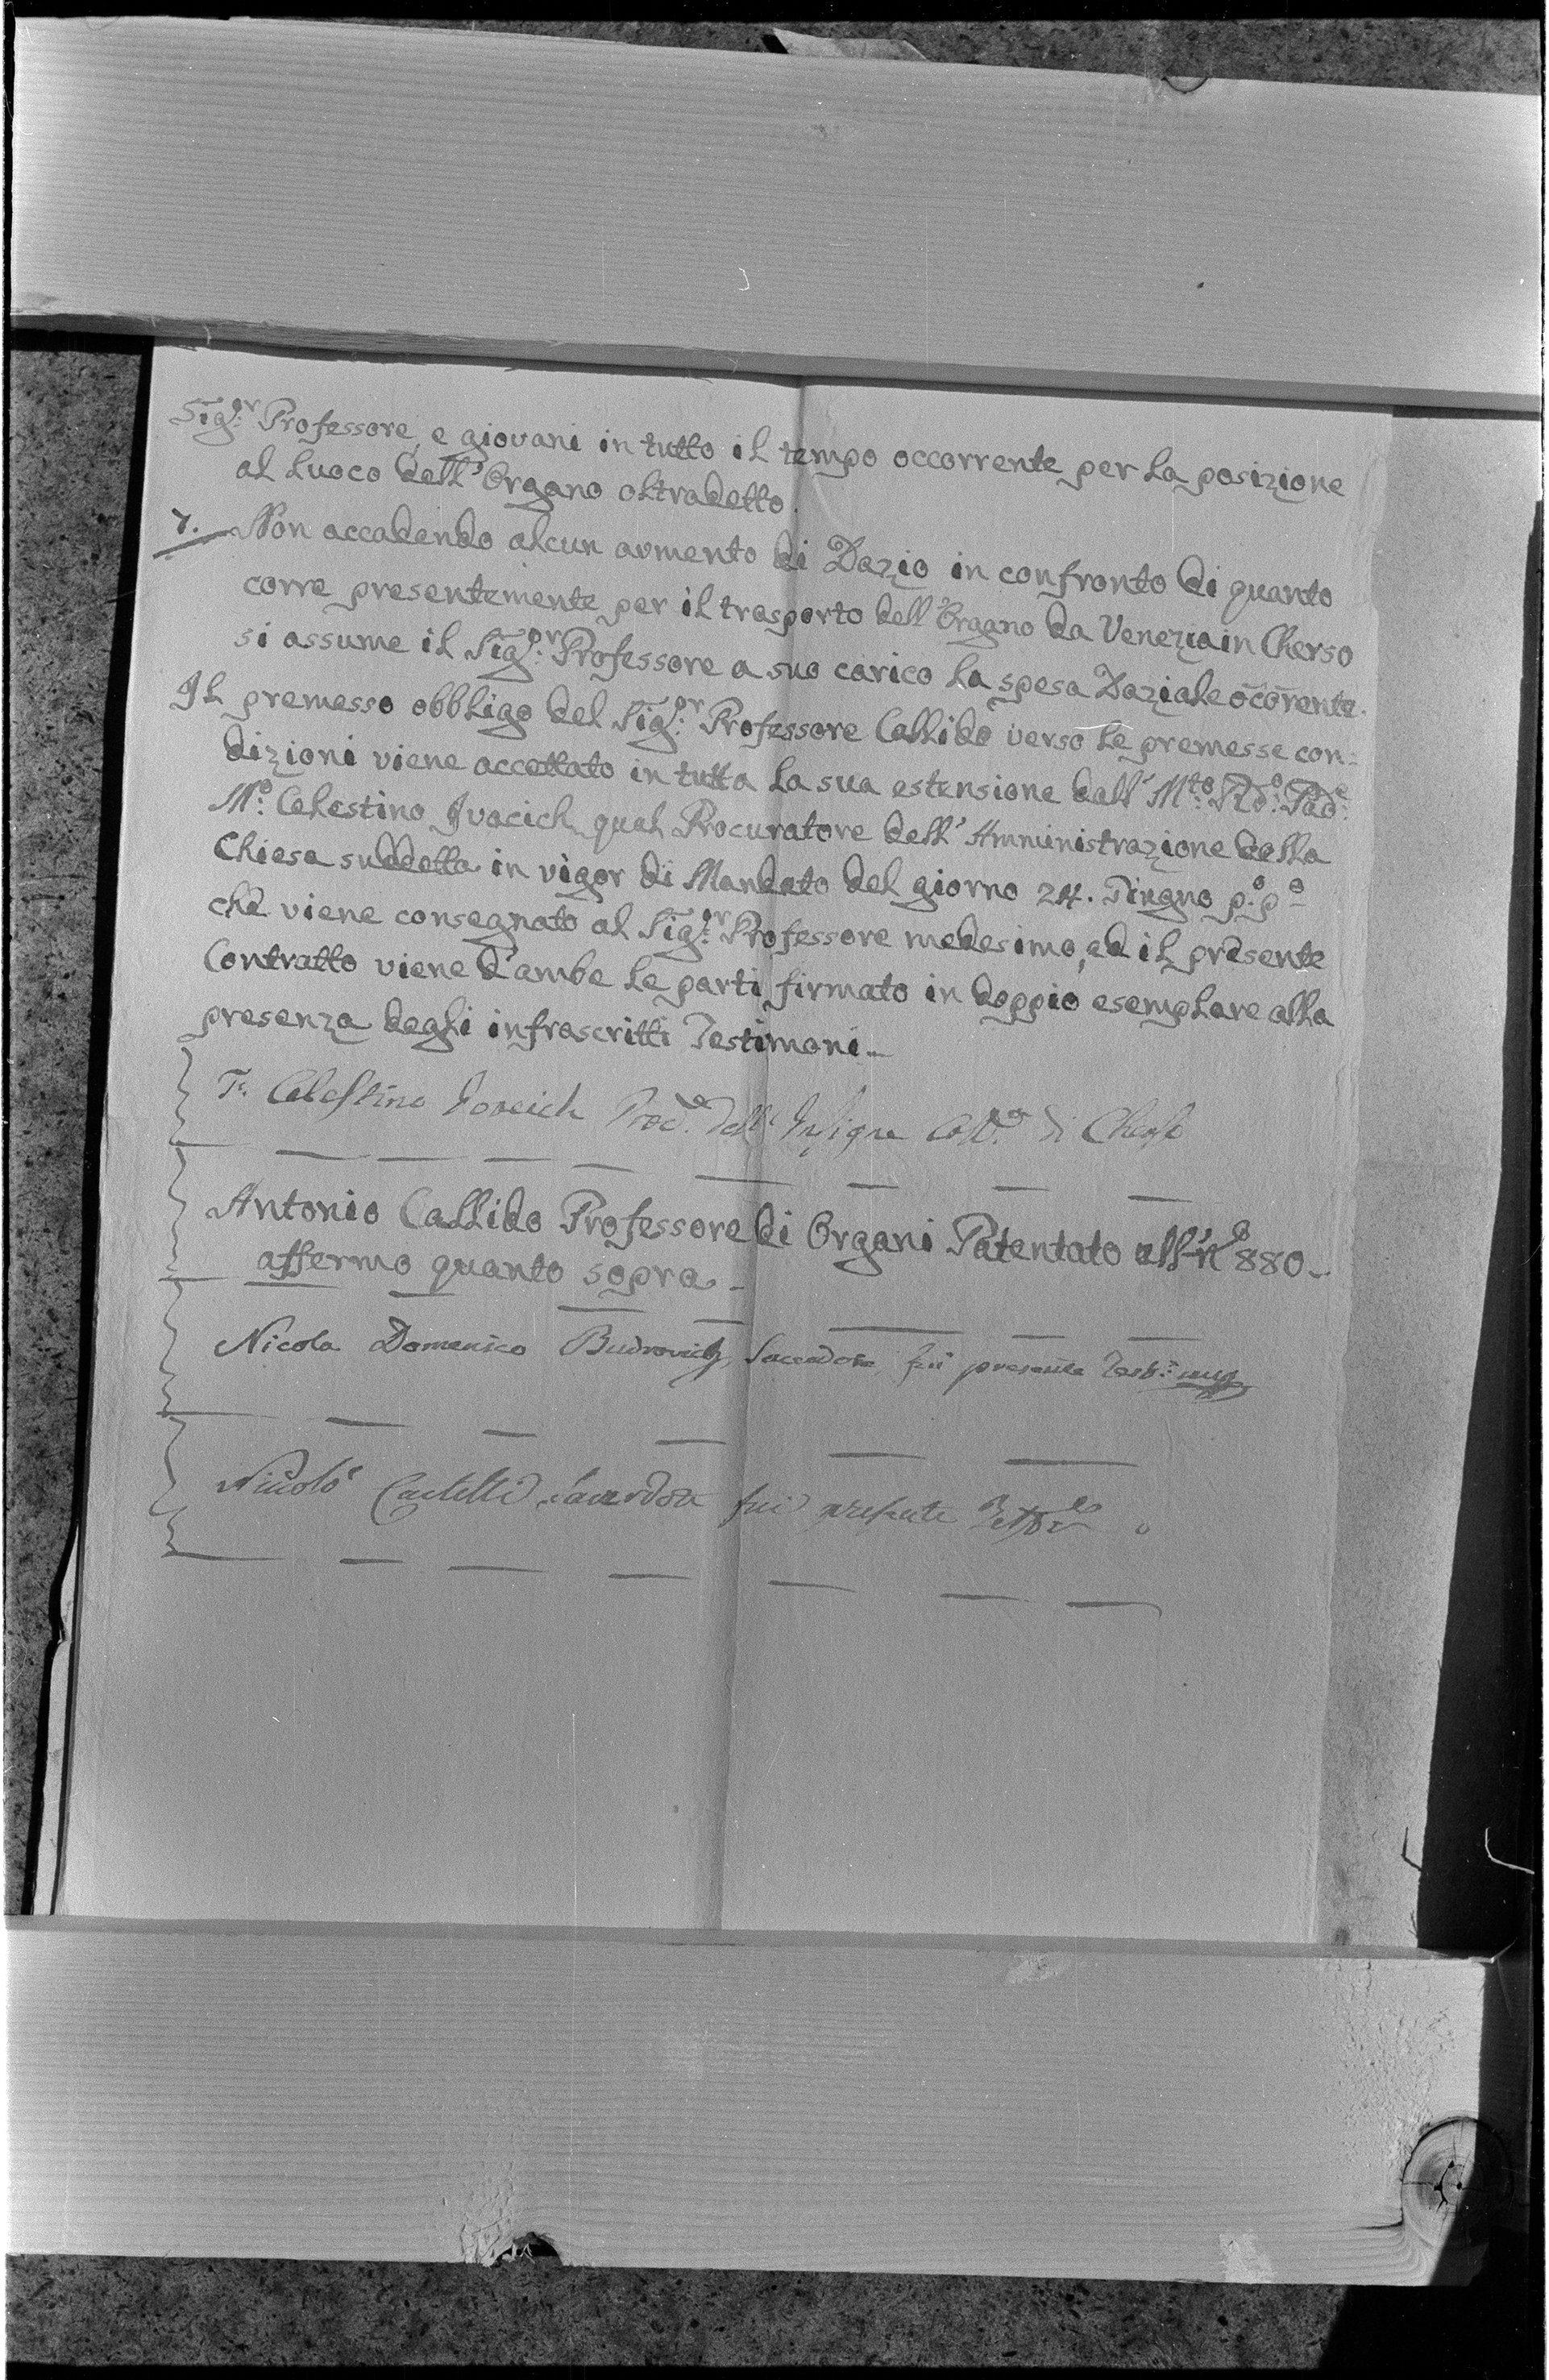 Sig:r Professore, e giovani in tutto il tempo occorrente per la posizione
al luoco dell'Organo oltradetto.
7. Non accadendo alcun aumento di Dazio in confronto di quanto
corre presentemente per il trasporto dell'Organo da Venezia in Cherso
si assume il Sig:r Professore a suo carico la spesa Daziale ocorrente.
Il premesso obbligo del Sig:r Professore Callido verso le premesse con=
dizioni viene accettato in tutta la sua estensione dall' M:to R:do Pad:e
M:o Celestino Ivacich qual Procuratore dell'Amministrazione della
Chiesa suddetta in vigor di Mandato del giorno 24. Giugno p:o p:o
che viene consegnato al Sig:r Professore medesimo, ed il presente
Contratto viene d'ambe le parti firmato in doppio esemplare alla
presenza degli infrascritti Testimoni_
Celestino Proc.e dell' Insigne di Cherso
Antonio Callido Professore di Organi Patentato all' No 880_
affermo quanto sopra_
Nicola Domenico Budrovich Sacerdote fui presente
Nicolò Sacerdote fui presente